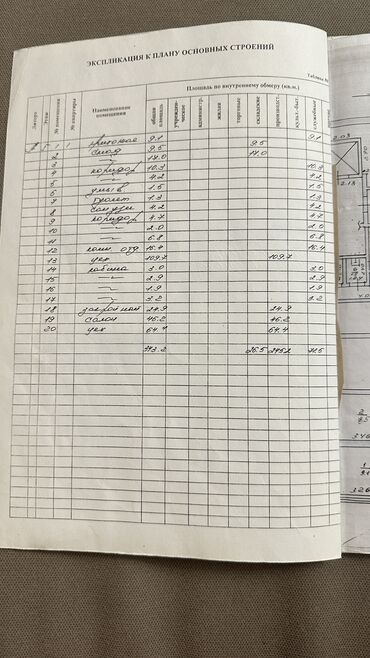 ЭКСПЛИКАЦИЯ К ПЛАНУ ОСНОВНЫХ СТРОЕНИЙ
Таблица №
Литера
Этаж
№ помещения
№ квартиры
Наименование помещения
Площадь по внутреннему обмеру (кв.м.)
общая площадь
учрежденческое
администр.
жилая
торговые
складские
производст.
культ.-быт.
служебные
1 прихожая 9.1 9.1
2 склад 9.5 9.5
3 —"— 17.0 17.0
4 коридор 10.3 10.3
5 —"— 4.2 4.2
6 умыв 1.5 1.5
7 туалет 1.3 1.3
8 сан узел 4.2 4.2
9 коридор 4.7 4.7
10 —"— 2.0 2.0
11 —"— 6.8 6.8
12 комн отд 16.4 16.4
13 цех 109.7 109.7
14 кабина 3.0 3.0
15 —"— 2.9 2.9
16 —"— 1.9 1.9
17 —"— 3.2 3.2
18 24.9 24.9
19 салон 46.2 46.2
20 цех 64.4 64.4
26.5
2.03
2.13